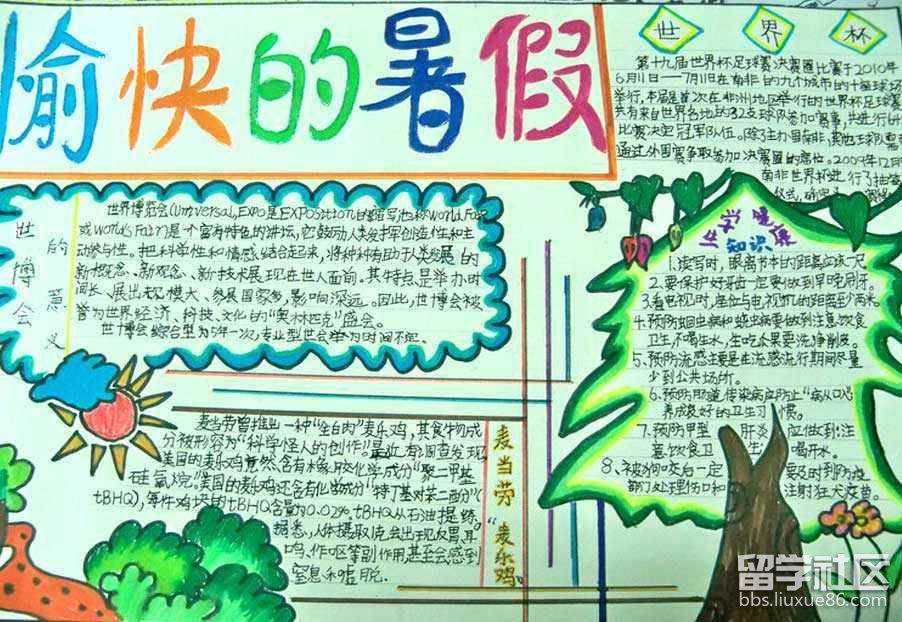 愉快的暑假
世界杯
第十九届世界杯足球赛决赛圈比赛于2010年
6月11日——7月11日在南非的九个城市的十座球场
举行,本届是首次在非洲地区举行的世界杯足球赛
共有来自世界各地的32支球队参加赛事,共进行64
比赛决定冠军队伍。除了主办国南非,其他球队需
通过外围赛争取参加决赛圈的席位。2009年12月
南非世界杯进行了抽签
仪式,
世博会
的意义
世界博览会(Universal,Expo是EXPOsition的缩写;也称World Fair
或World's Fair)是个富有特色的讲坛,它鼓励人类发挥创造性和主
动参与性。把科学性和情感结合起来,将种种有助于人类发展的
新概念、新观念、新技术展现在世人面前。其特点是举办时
间长、展出规模大、参展国家多,影响深远。因此,世博会被
誉为世界经济、科技、文化的“奥林匹克”盛会。
世博会综合型为5年一次,专业型世会举办时间不定。
健康
知识
1.读写时,眼离书本的距离应该一尺
2.要保护好牙齿一定要做到早晚刷牙。
3.看电视时,座位与电视机的距离至少两米。
4.预防蛔虫病和蛲虫病要做到注意饮食
卫生,不喝生水,生吃瓜果要洗净削皮。
5.预防流感主要是在流感流行期间尽量
少到公共场所。
6.预防肠道传染病应防止“病从口入”
养成良好的卫生习惯。
7.预防甲型肝炎应做到:注
意饮食卫生,喝开水。
8、被狗咬后一定要及时到防疫
部门处理伤口和注射狂犬疫苗。
麦当劳曾推出一种“全白肉”麦乐鸡,其食物成
分被形容为“科学怪人的创作”。最近有调查发现,
美国的麦乐鸡竟然含有橡胶化学成分“聚二甲基
硅氧烷”。美国的麦乐鸡还含有化学成分“特丁基对苯二酚”(
tBHQ),每件鸡块的tBHQ含量为0.02%。tBHQ从石油提炼,
据悉,人体摄取1克,会出现反胃、耳
鸣、作呕等副作用甚至会感到
窒息和虚脱。
麦当劳“麦乐鸡”
留学社区
bbs.liuxue86.com